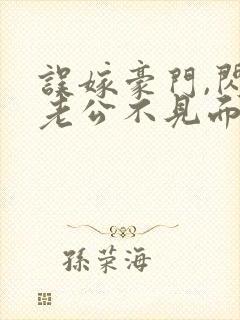 誤嫁豪門,閃
老公不見而
孫荣海